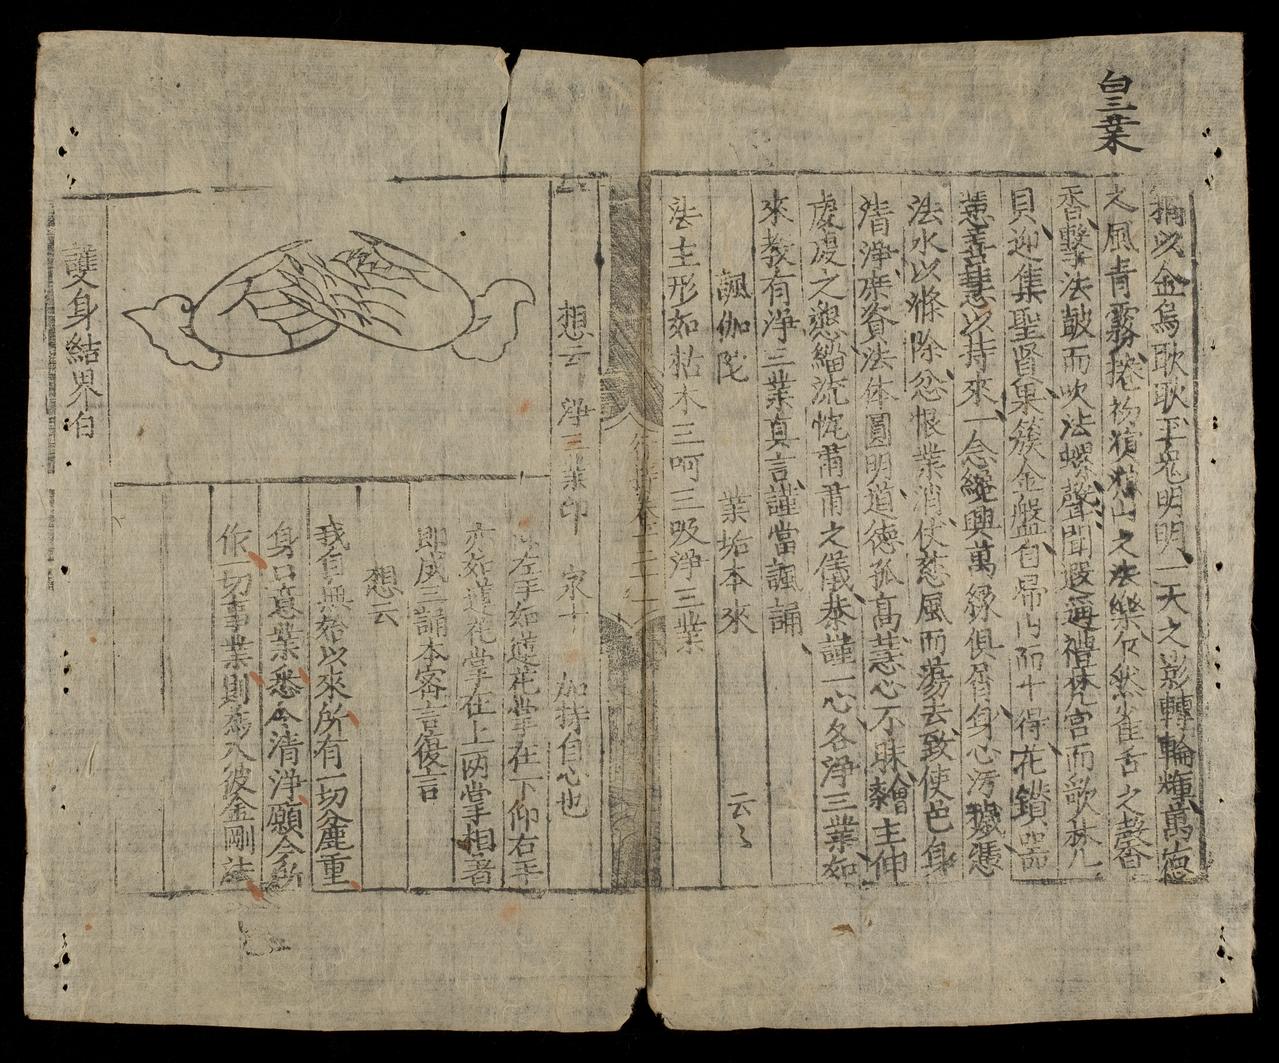 白三業
窃以金烏耿耿玉兎明明一天之影轉輪輝萬德
之風青霧捲物之法樂仌然雀舌之馨
香擊法皷而吹法螺聲聞遐邇禮梵宮而歌梵
貝迎集聖賢果簇金盤自帰內而十得花鎖噐
蕙善慧以持來一念纔興萬縁俱屑身心汚穢憑
法水以滌除忿恨業消仗慈風而蕩去致使色身
清淨庶資法体圓明道德孤高慧心不昧齋主仰
虔虔之懇緇流恔甫甫之儀恭謹一心各淨三業如
來教有淨三業真言謹當諷誦
諷伽陀 業垢本來 云云
法主形如枯木三呵三吸淨三業
想云 淨三業印 加持自心也
左手如蓮花掌在下仰右手
亦如蓮花掌在上兩掌相著
即成三誦本密言復言
想云
我自無始以來所有一切塵重
身口意業悉令清淨願令所
作一切事業則為入彼金剛法
護身結界伯